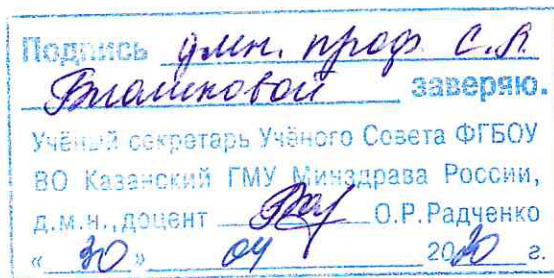 Подпись д.м.н. проф. С.А.
заверяю.
Учёный секретарь Учёного Совета ФГБОУ
ВО Казанский ГМУ Минздрава России,
д.м.н., доцент О.Р.Радченко
« 30 » 04 2020 г.